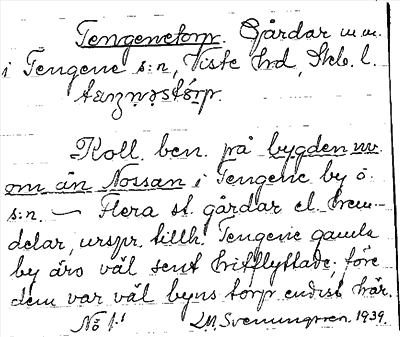 Tengenetorp. Gårdar m.m.
i Tengene s:n, Viste hd, Skb. l.
Koll. ben. på bygden nv.
om ån Nossan i Tengene by o.
s:n. — Flera st. gårdar el. hem-
delar, urspr. tillh. Tengene gamla
by äro väl sent hitflyttade, före
dem var väl byns torp endast här.
Nö 1:1 1939.